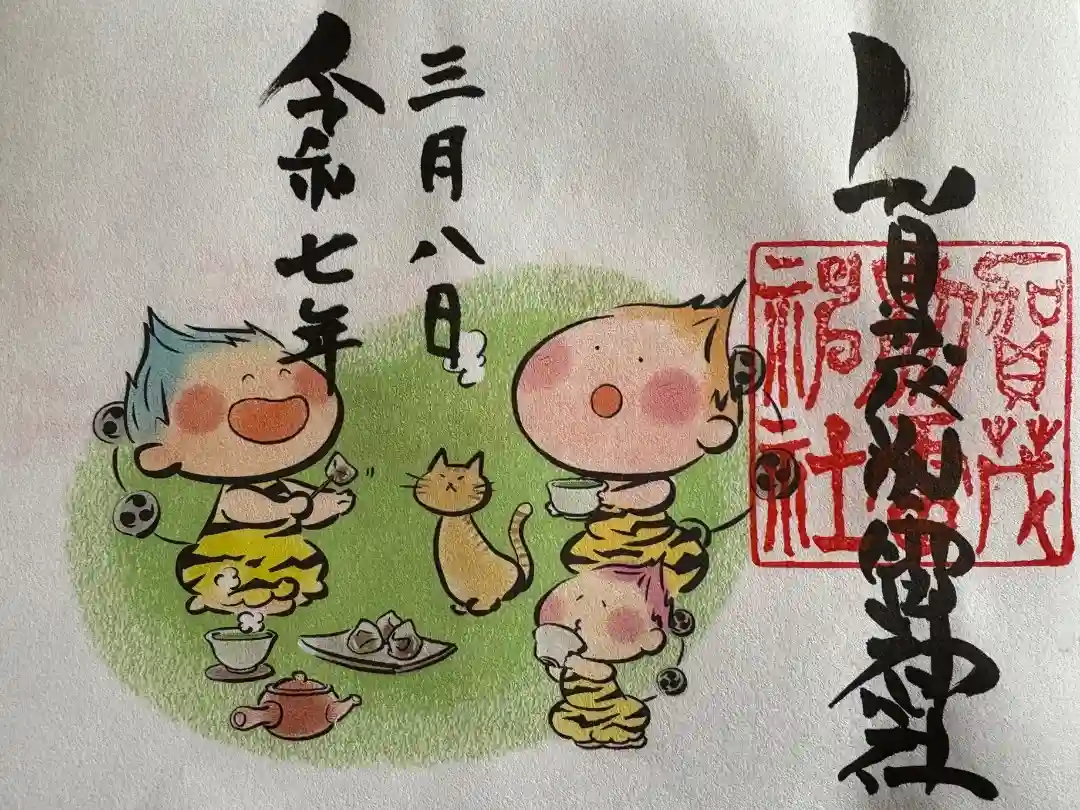 賀茂別雷神社
賀茂
別雷
神社
三月八日
令和七年